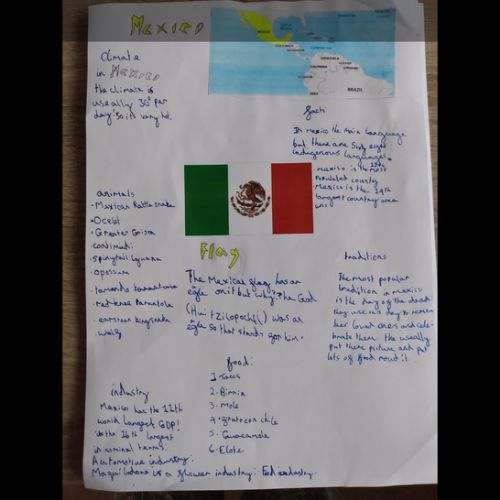 Mexico
climate
in Mexico
the climate is
useally 35° per
day so its very hot.
MEXICO
CUBA
GUATEMALA
VENEZUELA
COLOMBIA
BRAZIL
PERU
facts
In mexico the main language
but there are sixty eight
indigenous languages.
mexico is the most
populated country
Mexico is the 14th
largest country area
wis
animals
Mexican Rattlesnake
Ocelot
Greater Grison
coatimudi
spinytail iguana
opossum
tamandua
wolf
Flag
The Mexican flag has an
egle on it but why? the God
(Huitzilopochtli) was an
egle so that stands for him.
traditions
The most popular
tradition in mexico
is the day of the dead
they use this day to remem
ber loved ones and cele-
brate them the usually
put there picture and put
lots of food round it.
food:
1. Tacos
2. Birria
3. Mole
5. Guacamole
6. Elote
industry
Mexico has the 12th
world largest GDP!
its the 16th largest
in nominal terms.
Automotive industry:
Maquiladora is a industry: Food industry.